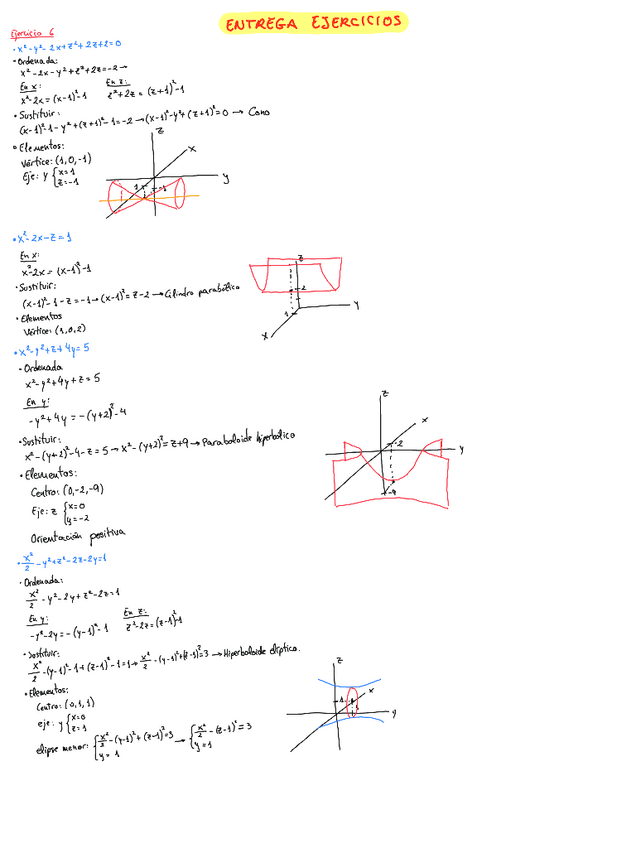 ENTREGA EJERCICIOS
Ejercicio 6
• x² - y² - 2x + z² + 2z + 2 = 0
• Ordenada:
x² - 2x - y² + z² + 2z = -2 →
En x: En z:
x² - 2x = (x-1)² - 1 z² + 2z = (z+1)² - 1
• Sustituir:
(x-1)² - 1 - y² + (z+1)² - 1 = -2 → (x-1)² - y² + (z+1)² = 0 → Cono
• Elementos:
Vértice: (1, 0, -1)
Eje: y { x = 1
z = -1
z
x
y
1
-1
• x² - 2x - z = 1
En x:
x² - 2x = (x-1)² - 1
• Sustituir:
(x-1)² - 1 - z = -1 → (x-1)² = z - 2 → Cilindro parabólico
• Elementos
Vértice: (1, 0, 2)
z
2
1
y
x
• x² - y² + z + 4y = 5
• Ordenada
x² - y² + 4y + z = 5
En y:
-y² + 4y = -(y+2)² - 4
• Sustituir:
x² - (y+2)² - 4 - z = 5 → x² - (y+2)² = z + 9 → Paraboloide hiperbólico
• Elementos:
Centro: (0, -2, -9)
Eje: z { x = 0
y = -2
Orientación positiva
z
x
-2
y
-9
• x²/2 - y² + z² - 2z - 2y = 1
• Ordenada:
x²/2 - y² - 2y + z² - 2z = 1
En y: En z:
-y² - 2y = -(y-1)² - 1 z² - 2z = (z-1)² - 1
• Sustituir:
x²/2 - (y-1)² - 1 + (z-1)² - 1 = 1 → x²/2 - (y-1)² + (z-1)² = 3 → Hiperboloide elíptico.
• Elementos:
Centro: (0, 1, 1)
eje: y { x = 0
z = 1
elipse menor: { x²/2 - (y-1)² + (z-1)² = 3 → { x²/2 - (z-1)² = 3
y = 1 y = 1
z
x
1
1
y